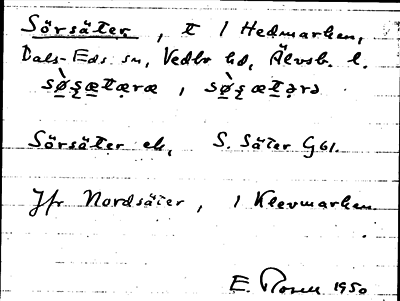 Sörsäter, t i Hedmarken,
Dals-Eds sn, Vedbo hd, Älvsb. l.
sø̀ʂætæræ, sø̀ʂætərə
Sörsäter ek, S. Säter G61.
Jfr Nordsäter, i Klevmarken.
E. Rosell 1950